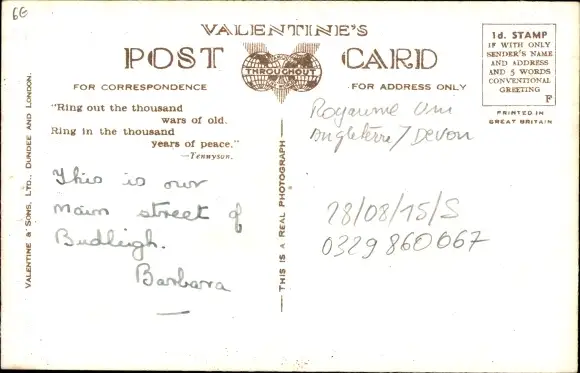 6E
VALENTINE'S
POST CARD
THROUGHOUT
FOR CORRESPONDENCE
FOR ADDRESS ONLY
1d. STAMP
IF WITH ONLY
SENDER'S NAME
AND ADDRESS
AND 5 WORDS
CONVENTIONAL
GREETING
F
PRINTED IN
GREAT BRITAIN
"Ring out the thousand
wars of old.
Ring in the thousand
years of peace."
—Tennyson.
This is our
main street of
Budleigh.
Barbara
VALENTINE & SONS, LTD., DUNDEE AND LONDON.
THIS IS A REAL PHOTOGRAPH
Royaume Uni
Angleterre/Devon
28/08/15/S
0329 860067